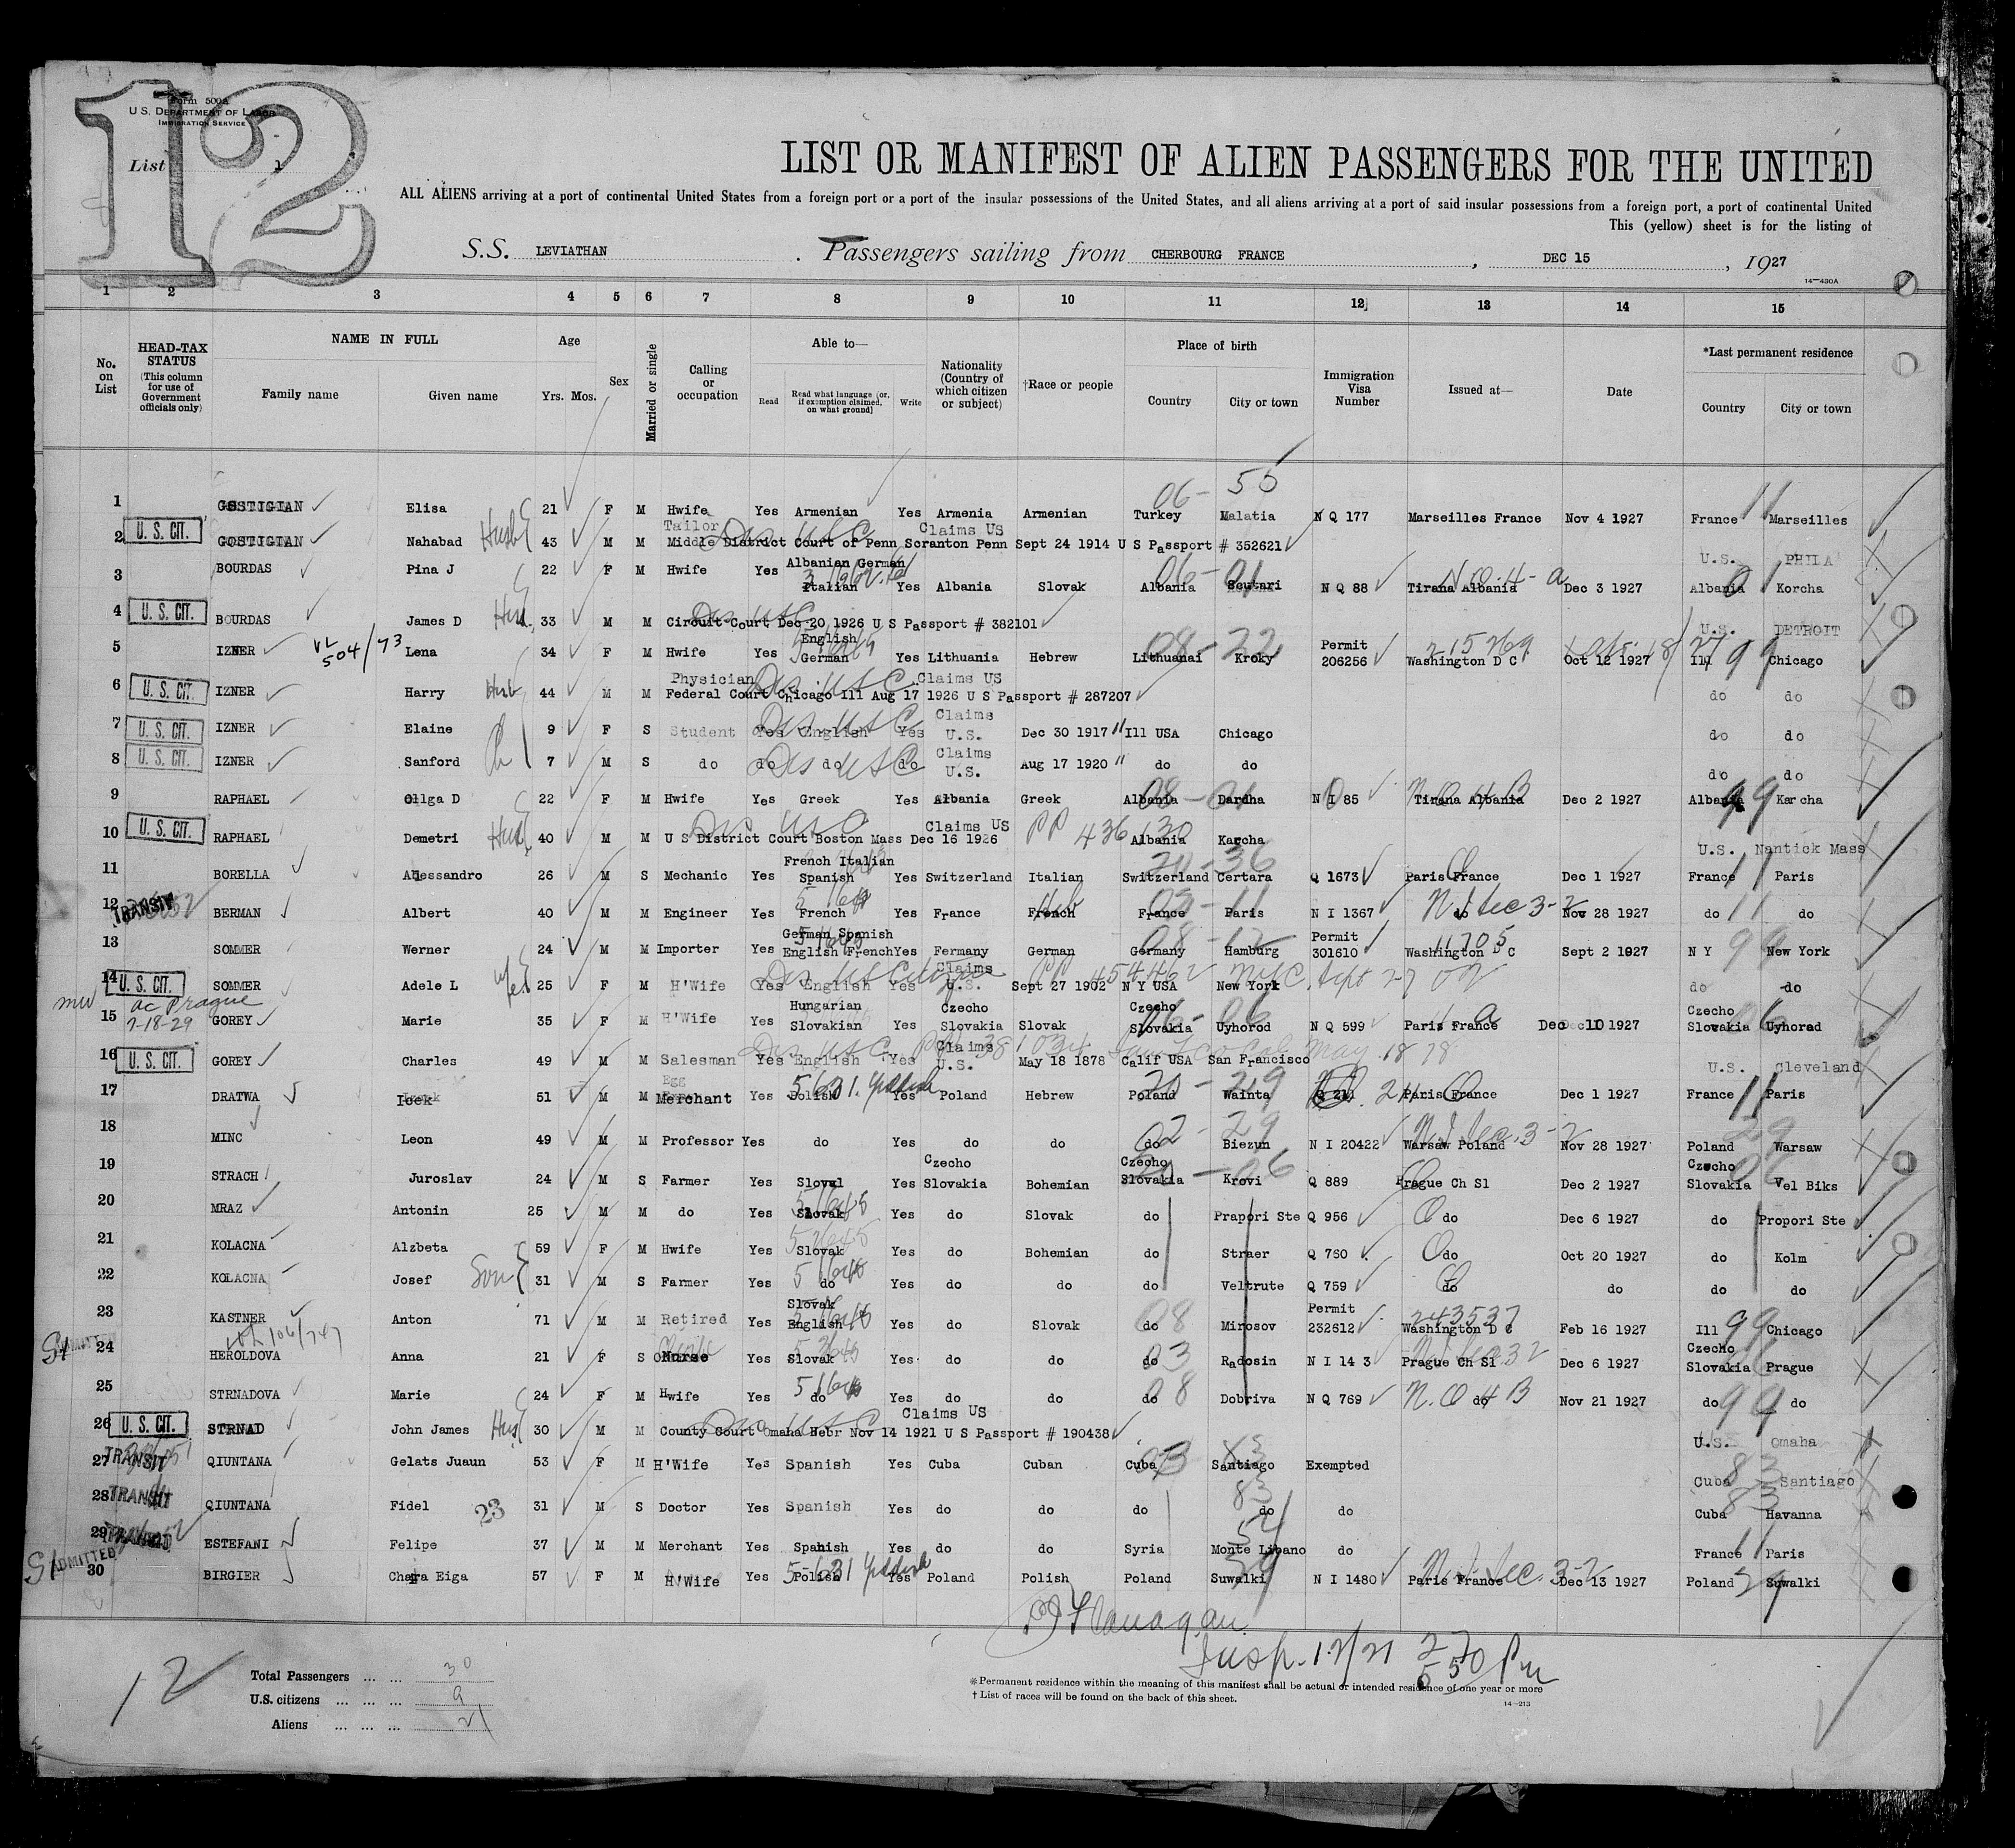 12
Form 500A
U. S. DEPARTMENT OF LABOR
IMMIGRATION SERVICE
List
LIST OR MANIFEST OF ALIEN PASSENGERS FOR THE UNITED
ALL ALIENS arriving at a port of continental United States from a foreign port or a port of the insular possessions of the United States, and all aliens arriving at a port of said insular possessions from a foreign port, a port of continental United
This (yellow) sheet is for the listing of
S.S. LEVIATHAN Passengers sailing from CHERBOURG FRANCE, DEC 15, 1927
14—430A
1 2 3 4 5 6 7 8 9 10 11 12 13 14 15
No. on List HEAD-TAX STATUS (This column for use of Government officials only) NAME IN FULL Family name Given name Age Yrs. Mos. Sex Married or single Calling or occupation Able to— Read Read what language (or, if exemption claimed, on what ground) Write Nationality (Country of which citizen or subject) †Race or people Place of birth Country City or town Immigration Visa Number Issued at— Date *Last permanent residence Country City or town
06- 55
1 GOSTIGIAN Elisa 21 F M Hwife Yes Armenian Yes Armenia Armenian Turkey Malatia N Q 177 Marseilles France Nov 4 1927 France 11 Marseilles
Tailor Claims US
2 U. S. CIT. GOSTIGIAN Nahabad Husb 43 M M Middle District Court of Penn Scranton Penn Sept 24 1914 U S Passport # 352621 U.S. PHILA
Albanian German
3 BOURDAS Pina J 22 F M Hwife Yes Italian Yes Albania Slovak Albania Scutari N Q 88 Tirana Albania Dec 3 1927 Albania Korcha
06-01
4 U. S. CIT. BOURDAS James D 33 M M Circuit Court Dec 20 1926 U S Passport # 382101 U.S. DETROIT
English Permit
5 IZNER 504/73 Lena 34 F M Hwife Yes German Yes Lithuania Hebrew Lithuanai Kroky 206256 Washington D C Oct 12 1927 Ill 99 Chicago
08-22 215269
Physician Claims US
6 U. S. CIT. IZNER Harry Husb 44 M M Federal Court Chicago Ill Aug 17 1926 U S Passport # 287207 do do
7 U. S. CIT. IZNER Elaine 9 F S Student Yes English Yes Claims U.S. Dec 30 1917 Ill USA Chicago do do
8 U. S. CIT. IZNER Sanford Ch 7 M S do do do do Claims U.S. Aug 17 1920 do do do do
9 RAPHAEL Ollga D 22 F M Hwife Yes Greek Yes Albania Greek Albania Dardha N I 85 Tirana Albania Dec 2 1927 Albania 99 Karcha
Claims US PP 436130
10 U. S. CIT. RAPHAEL Demetri Husb 40 M M U S District Court Boston Mass Dec 16 1926 Albania Karcha U.S. Nantick Mass
French Italian 20-36
11 BORELLA Alessandro 26 M S Mechanic Yes Spanish Yes Switzerland Italian Switzerland Certara Q 1673 Paris France Dec 1 1927 France 11 Paris
12 TRANSIT BERMAN Albert 40 M M Engineer Yes French Yes France French France Paris N I 1367 do Nov 28 1927 do 11 do
German Spanish Permit 11705
13 SOMMER Werner 24 M M Importer Yes English French Yes Fermany German Germany Hamburg 301610 Washington D C Sept 2 1927 N Y 99 New York
08-12
14 U. S. CIT. SOMMER Adele L wife 25 F M H'Wife Yes English Yes Claims U.S. Sept 27 1902 N Y USA New York do do
PP 454462 NYC. Sept 27 02
ac Prague 7-18-29
15 GOREY Marie 35 F M H'Wife Yes Hungarian Slovakian Yes Czecho Slovakia Slovak Czecho Slovakia Uyhorod N Q 599 Paris France Dec 10 1927 Czecho Slovakia Uyhorad
16 U. S. CIT. GOREY Charles 49 M M Salesman Yes English Yes Claims U.S. May 18 1878 Calif USA San Francisco U.S. Cleveland
17 DRATWA Icek 51 M M Egg Merchant Yes Polish Yes Poland Hebrew Poland Wainta Q 211 Paris France Dec 1 1927 France 11 Paris
5-631. Yiddish 20-29
18 MINC Leon 49 M M Professor Yes do Yes do do do Biezun N I 20422 Warsaw Poland Nov 28 1927 Poland 29 Warsaw
02-29 N.I Sec. 3-2
19 STRACH Juroslav 24 M S Farmer Yes Sloval Yes Czecho Slovakia Bohemian Czecho Slovakia Krovi Q 889 Prague Ch Sl Dec 2 1927 Czecho Slovakia 06 Vel Biks
20 MRAZ Antonin 25 M M do Yes Slovak Yes do Slovak do Prapori Ste Q 956 do Dec 6 1927 do Propori Ste
21 KOLACNA Alzbeta 59 F M Hwife Yes Slovak Yes do Bohemian do Straer Q 760 do Oct 20 1927 do Kolm
22 KOLACNA Josef Son 31 M S Farmer Yes do Yes do do do Veltrute Q 759 do do do do
Slovak Permit 243537
23 KASTNER Anton 71 M M Retired Yes English Yes do Slovak do Mirosov 232612 Washington D C Feb 16 1927 Ill 99 Chicago
24 ADMITTED HEROLDOVA Anna 21 F S Nurse Yes Slovak Yes do do do Radosin N I 14 3 Prague Ch Sl Dec 6 1927 Czecho Slovakia Prague
25 STRNADOVA Marie 24 F M Hwife Yes do Yes do do do Dobriva N Q 769 do Nov 21 1927 do 99 do
Claims US
26 U. S. CIT. STRNAD John James Husb 30 M M County Court Omaha Nebr Nov 14 1921 U S Passport # 190438 U.S. Omaha
27 TRANSIT QIUNTANA Gelats Juaun 53 F M H'Wife Yes Spanish Yes Cuba Cuban Cuba Santiago Exempted Cuba 83 Santiago
28 TRANSIT QIUNTANA Fidel 23 31 M S Doctor Yes Spanish Yes do do do do do Cuba 83 Havanna
29 TRANSIT ESTEFANI Felipe 37 M M Merchant Yes Spanish Yes do do Syria Monte Libano do France 11 Paris
30 ADMITTED BIRGIER Chaja Eiga 57 F M H'Wife Yes Polish Yes Poland Polish Poland Suwalki N I 1480 Paris France Dec 13 1927 Poland 29 Suwalki
5-631 Yiddish N.I Sec. 3-2
Flanagan
Insp. 12/21 270 550 Pm
12
Total Passengers ... ... 30
U.S. citizens ... ... ... 9
Aliens ... ... ... 21
*Permanent residence within the meaning of this manifest shall be actual or intended residence of one year or more
† List of races will be found on the back of this sheet.
14—213